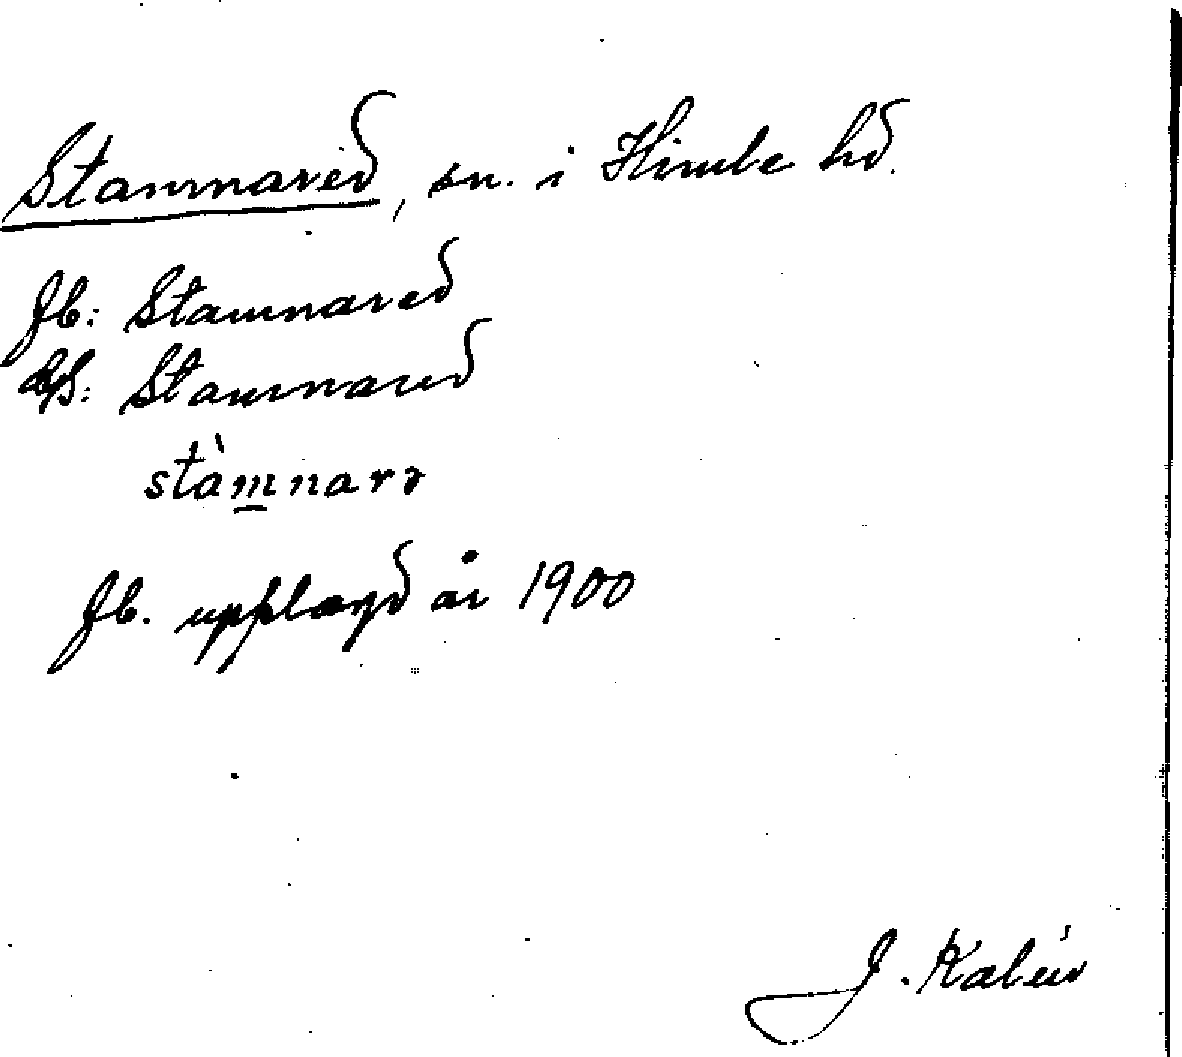 Stamnared, sn. i Himle hd.
Jb: Stamnared
Stamnared
stàmnarɘ
Jb. upplagd år 1900
J. Kalén